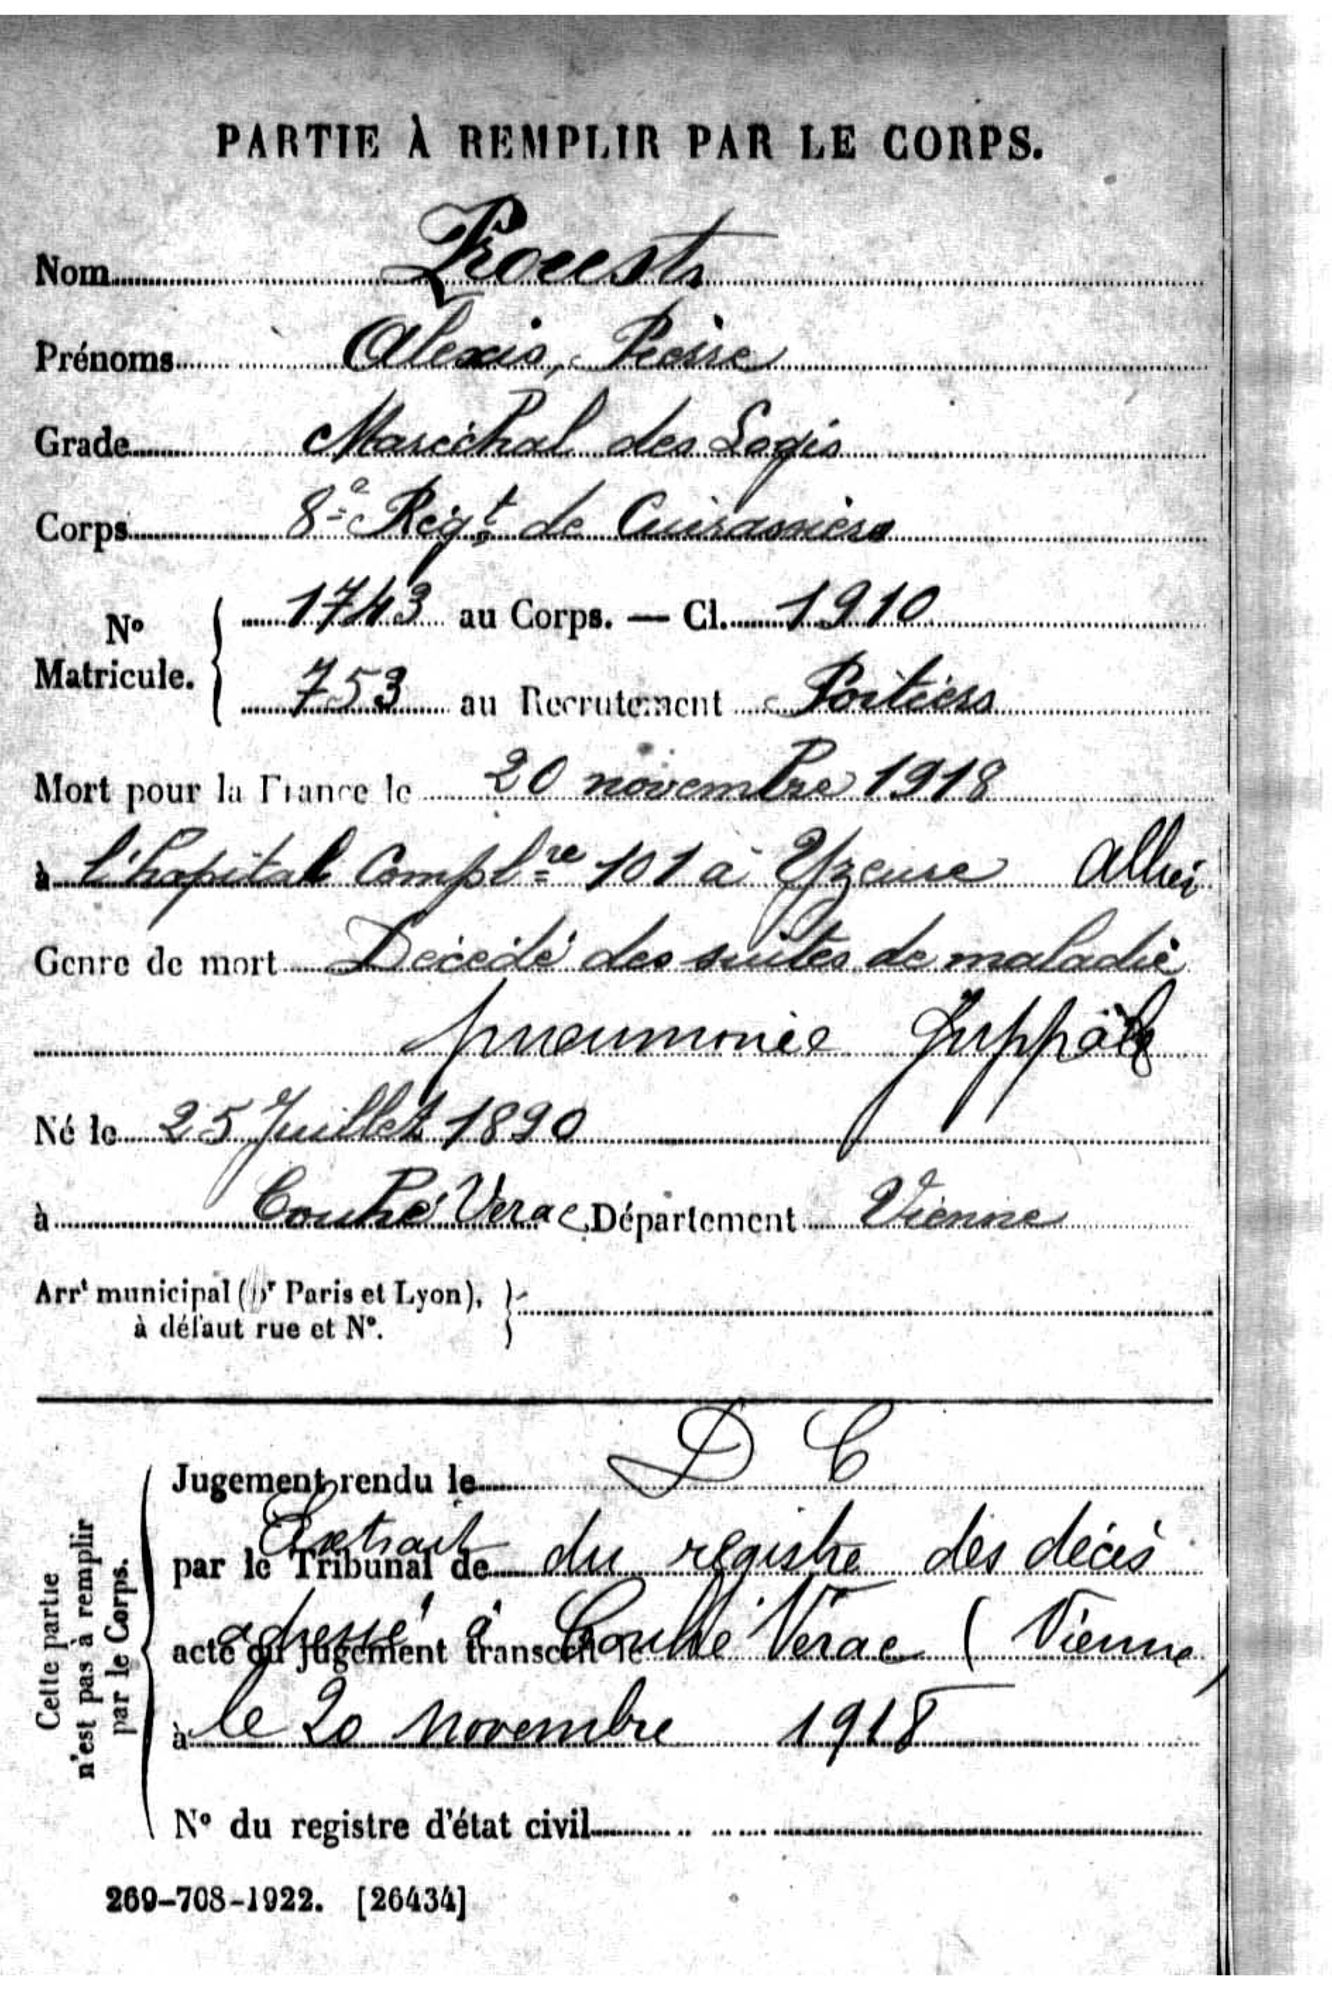 PARTIE À REMPLIR PAR LE CORPS.
Nom Proust
Prénoms Alexis, Pierre
Grade Maréchal des Logis
Corps 8e Régt de Cuirassiers
No Matricule. { 1743 au Corps. — Cl. 1910
753 au Recrutement Poitiers
Mort pour la France le 20 novembre 1918
à l'hopital Complre 101 à Yzeure Allier
Genre de mort Décédé des suites de maladie
pneumonie
Né le 25 Juillet 1890
à Couhé Verac Département Vienne
Arrt municipal (pr Paris et Lyon), }
à défaut rue et No.
D C
Jugement rendu le
Extrait du registre des décès
par le Tribunal de
adressé à Couhé Verac (Vienne)
acte ou jugement transcrit le
à le 20 novembre 1918
No du registre d'état civil
Cette partie
n'est pas à remplir
par le Corps.
269-708-1922. [26434]